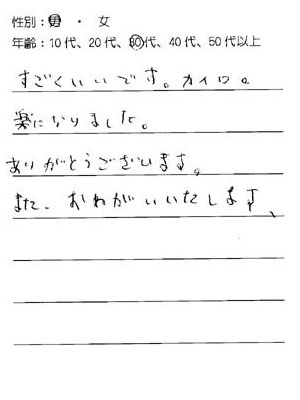 性別：男 ・ 女
年齢：10代、20代、30代、40代、50代以上
すごくいいです。カイロ。
楽になりました。
ありがとうございます。
また、おねがいいたします、